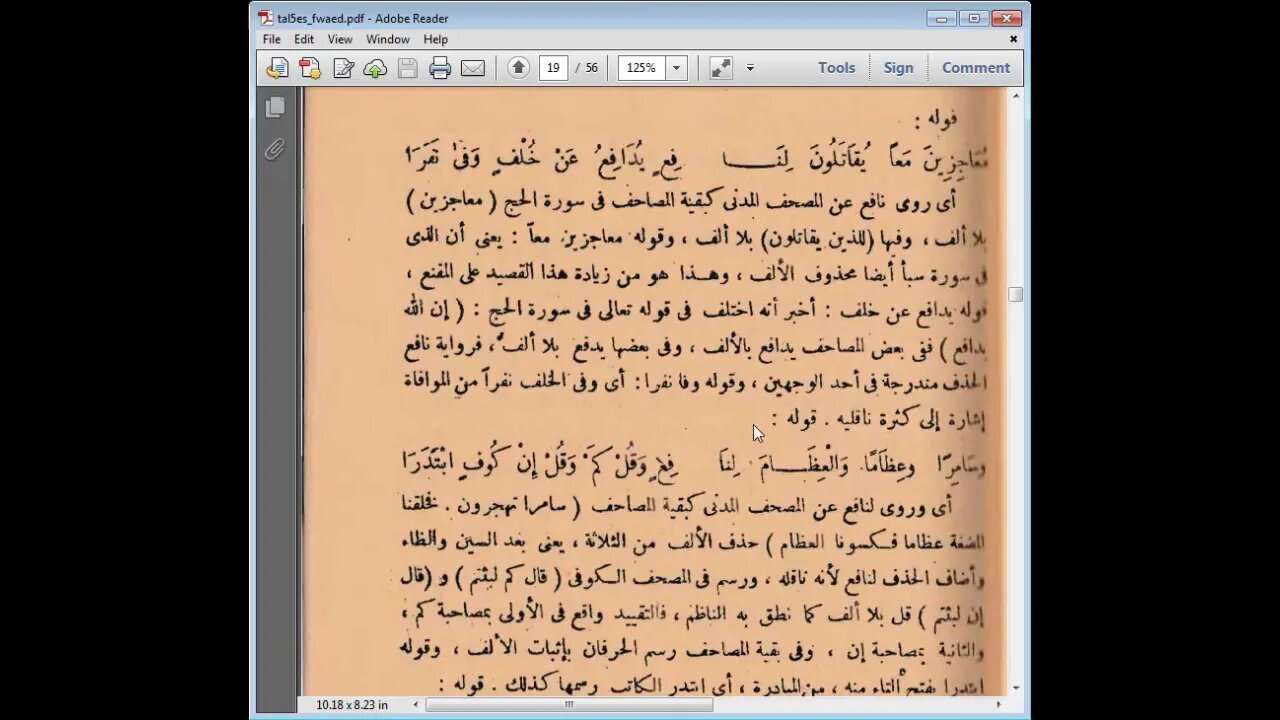 tal5es_fwaed.pdf - Adobe Reader
File Edit View Window Help
19 / 56 125% Tools Sign Comment
قوله :
مُعَاجِزِينَ مَعاً يُقَاتَلُونَ لِنَـــا فِعٍ يُدَافِعُ عَنْ خُلْفٍ وَفَى نَفَرَا
أى روى نافع عن المصحف المدنى كبقية المصاحف فى سورة الحج ( معاجزين )
بلا ألف ، وفيها (للذين يقاتلون) بلا ألف ، وقوله معاجزين معاً : يعنى أن الذى
فى سورة سبأ أيضا محذوف الألف ، وهـذا هو من زيادة هذا القصيد على المقنع ،
قوله يدافع عن خلف : أخبر أنه اختلف فى قوله تعالى فى سورة الحج : ( إن الله
يدافع ) ففى بعض المصاحف يدافع بالألف ، وفى بعضها يدفع بلا ألف ، فرواية نافع
الحذف مندرجة فى أحد الوجهين ، وقوله وفا نفرا : أى وفى الخلف نفراً من الموافاة
إشارة إلى كثرة ناقليه . قوله :
وَسَامِرًا وعِظَامًا وَالْعِظَـــامَ لِنَا فِعٍ وَقُلْ كَمْ وَقُلْ إِنْ كُوفٍ ابْتَدَرَا
أى وروى لنافع عن المصحف المدنى كبقية المصاحف ( سامرا تهجرون . فخلقنا
المضغة عظاما فـكسونا العظام ) حذف الألف من الثلاثة ، يعنى بعد السين والظاء
وأضاف الحذف لنافع لأنه ناقله ، ورسم فى المصحف الـكوفى ( قال كم لبثتم ) و (قال
إن لبثتم ) قل بلا ألف كما نطق به الناظم ، فالتقييد واقع فى الأولى بمصاحبة كم ،
والثانية بمصاحبة إن ، وفى بقية المصاحف رسم الحرفان بإثبات الألف ، وقوله
ابتدرا بفتح التاء منه ، من المبادرة ، أى ابتدر الكاتب رسمها كذلك . قوله :
10.18 x 8.23 in